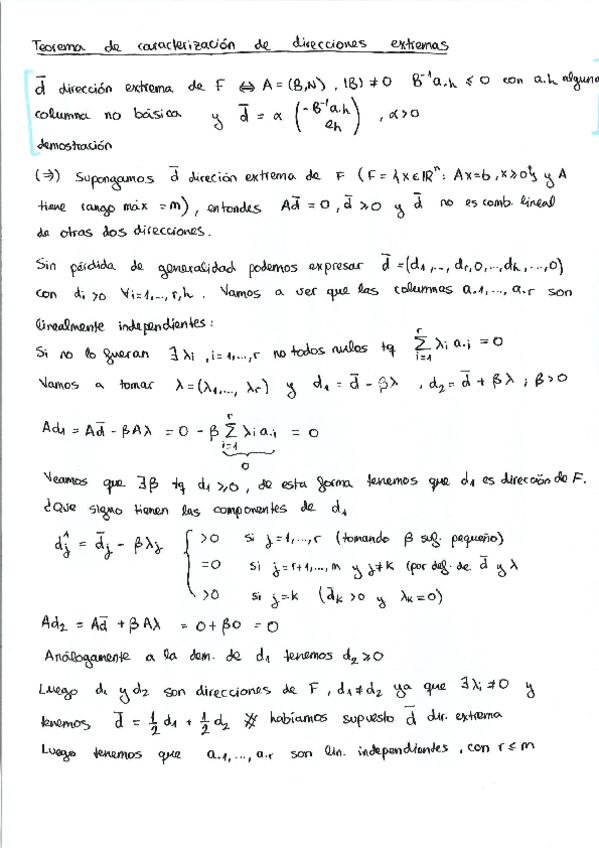 Teorema de caracterización de direcciones extremas
d̄ dirección extrema de F ⇔ A = (B,N), |B| ≠ 0 B⁻¹a.h ≤ 0 con a.h alguna
columna no básica y d̄ = α (-B⁻¹a.h / eh), α>0
demostración
(⇒) Supongamos d̄ direción extrema de F (F = {x∈ℝⁿ: Ax=b, x≥0} y A
tiene rango máx = m), entondes Ad̄ = 0, d̄ ≥ 0 y d̄ no es comb. lineal
de otras dos direcciones.
Sin pérdida de generalidad podemos expresar d̄ = (d1,..., dr,0,...,dh,...,0)
con di>0 ∀i=1,...,r,h. Vamos a ver que las columnas a.1,..., a.r son
linealmente independientes:
Si no lo fueran ∃λi, i=1,...,r no todos nulos tq Σ_{i=1}^{r} λi a.i = 0
Vamos a tomar λ=(λ1,..., λr) y d1 = d̄ - βλ, d2 = d̄ + βλ ; β>0
Ad1 = Ad̄ - βAλ = 0 - β Σ_{i=1}^{r} λi a.i = 0
0
Veamos que ∃β tq d1≥0, de esta forma tenemos que d1 es dirección de F.
¿Que signo tienen las componentes de d1
d_j^1 = d̄j - βλj { >0 si j=1,...,r (tomando β suf. pequeño)
=0 si j=r+1,...,m y j≠k (por def. de d̄ y λ
>0 si j=k (d̄k >0 y λk=0)
Ad2 = Ad̄ + βAλ = 0+β0 = 0
Análogamente a la dem. de d1 tenemos d2≥0
Luego d1 y d2 son direcciones de F, d1≠d2 ya que ∃λi ≠0 y
tenemos d̄ = ½ d1 + ½ d2 # habíamos supuesto d̄ dir. extrema
Luego tenemos que a.1,..., a.r son lin. independiantes, con r≤m